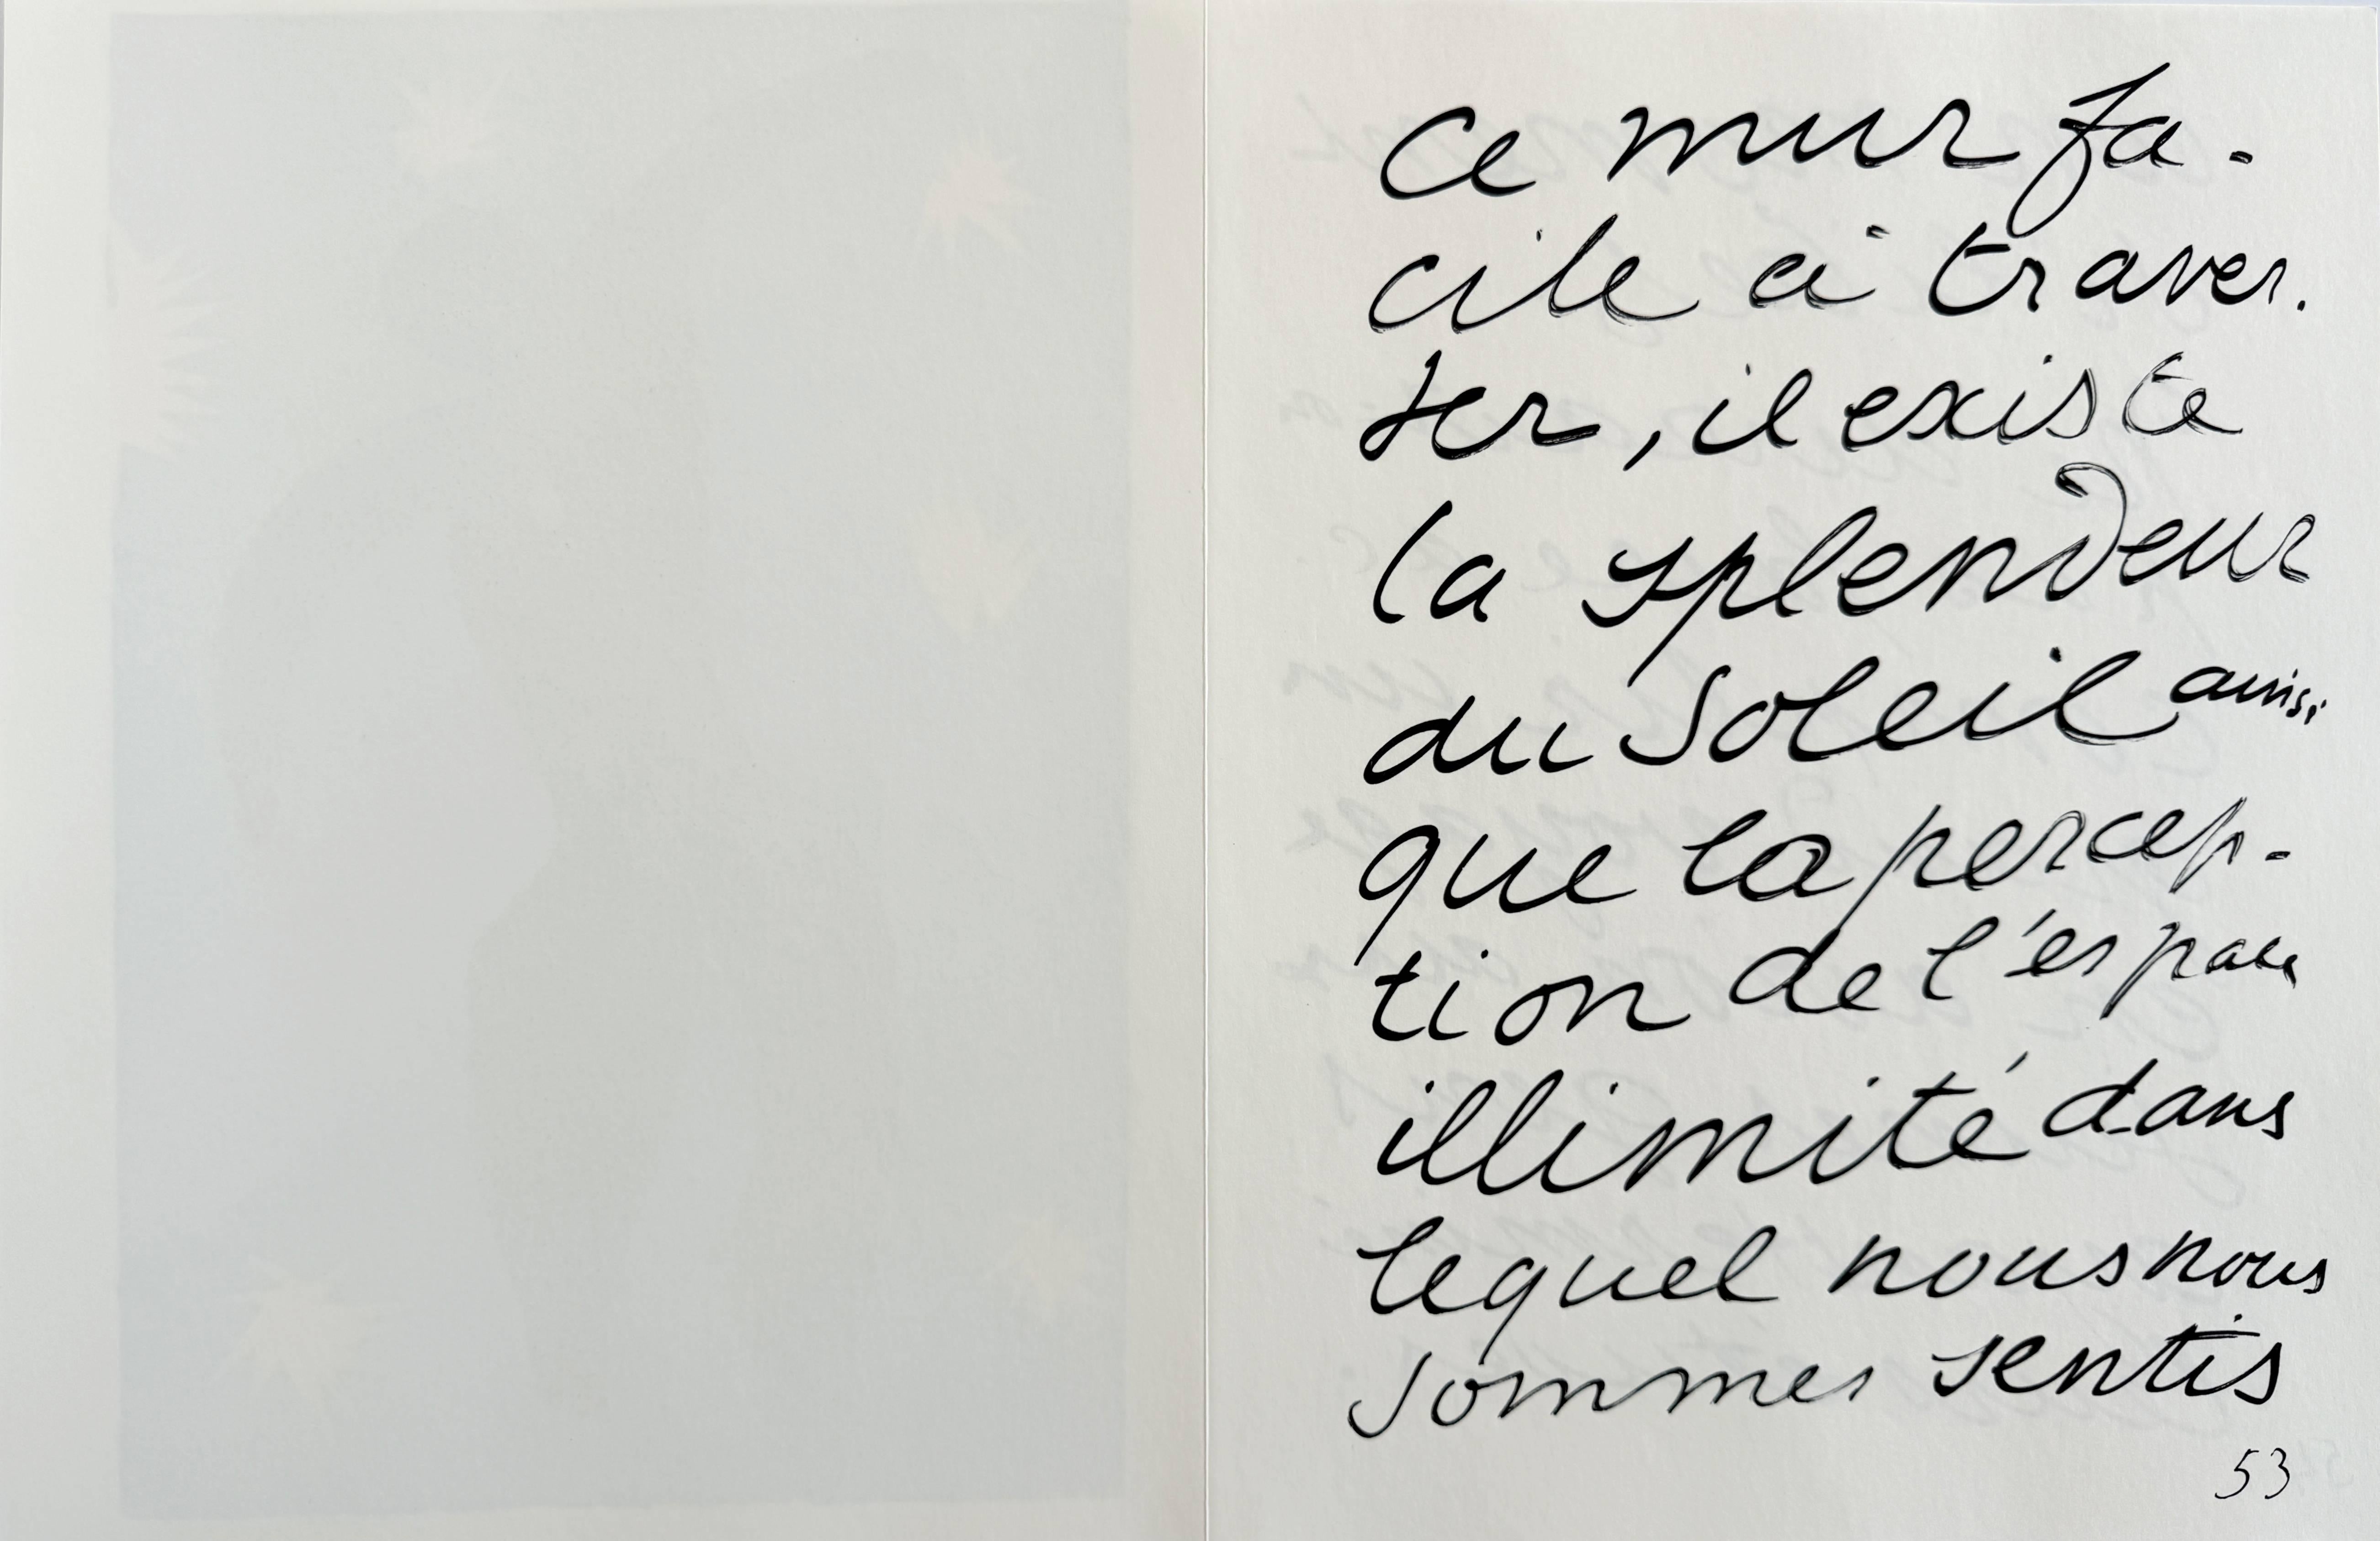 ce mur fa-
cile à traver-
ser, il existe
la splendeur
du soleil ainsi
que la percep-
tion de l'espace
illimité dans
lequel nous nous
sommes sentis
53